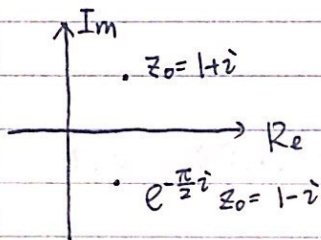 Im
z₀ = 1+i
Re
e^{-π/2 i} z₀ = 1-i